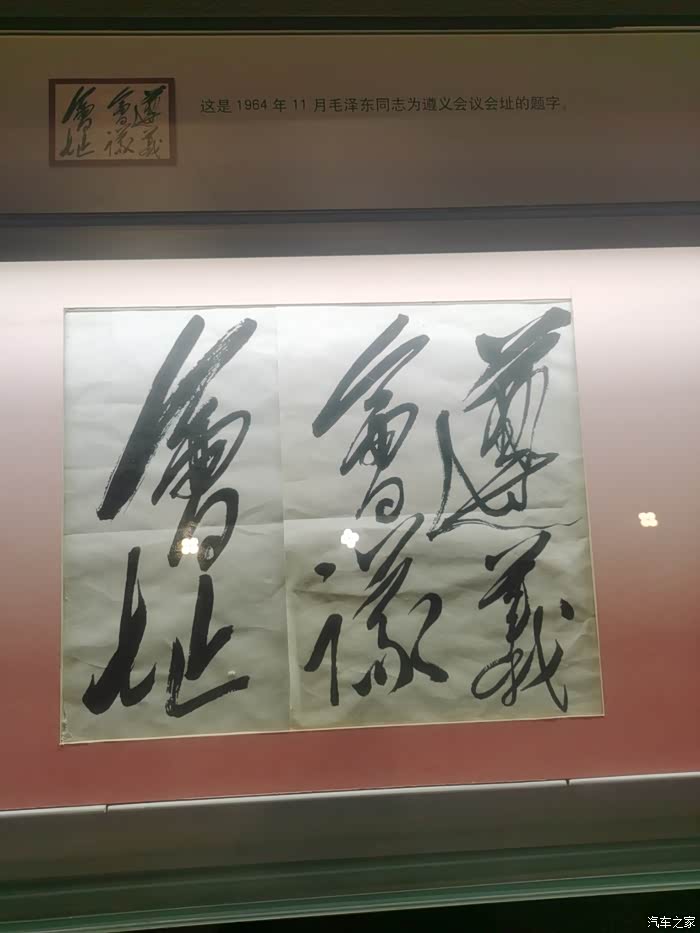 會議 遵義
會址
这是1964年11月毛泽东同志为遵义会议会址的题字。
遵義
會議
會址
汽车之家